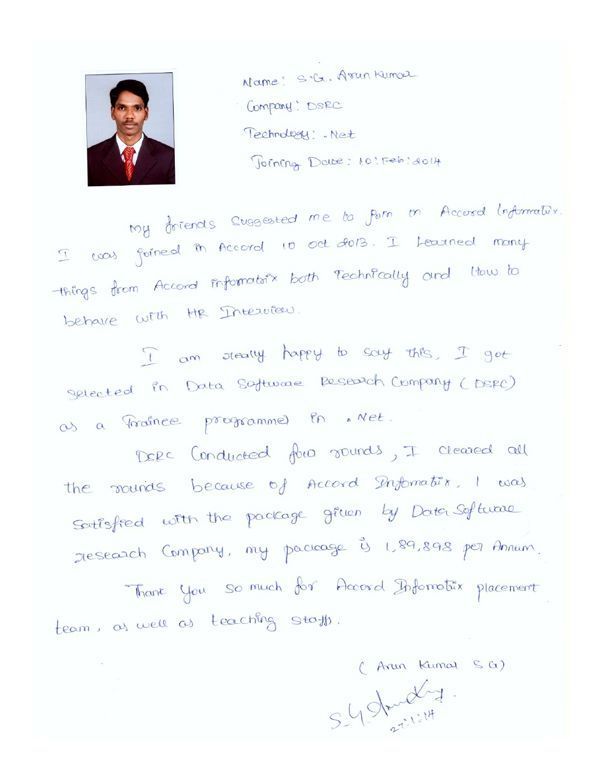 Name: S.G. Arun Kumar
Company: DSRC
Technology: .Net
Joining Date: 10.Feb.2014
My friends Suggested me to Join in Accord Informatix.
I was joined in Accord 10 oct 2013. I Learned many
things from Accord infomatrix both Technically and How to
behave with HR Interview.
I am really happy to say this, I got
selected in Data Software Research Company (DSRC)
as a Trainee programmer in .Net.
DSRC Conducted four rounds, I cleared all
the rounds because of Accord Infomatix. I was
satisfied with the package given by Data Software
research Company, my package is 1,89,898 per Annum.
Thank You so much for Accord Infomatix placement
team, as well as teaching staffs.
(Arun Kumar S G)
27.1.14